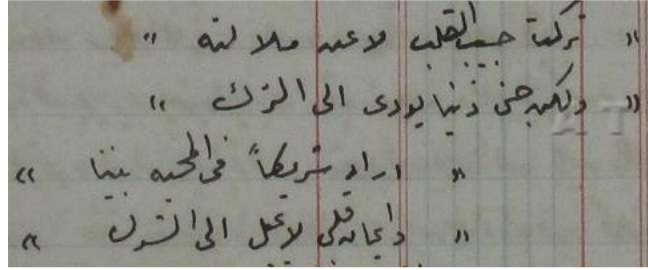 " تركت حبيب القلب لا عن ملالته "
" ولكن جنى ذنبا يودى الى الترك "
" اراد شريكاً فى المحبه بيننا "
" وايمان قلبى لا يميل الى الشرك "